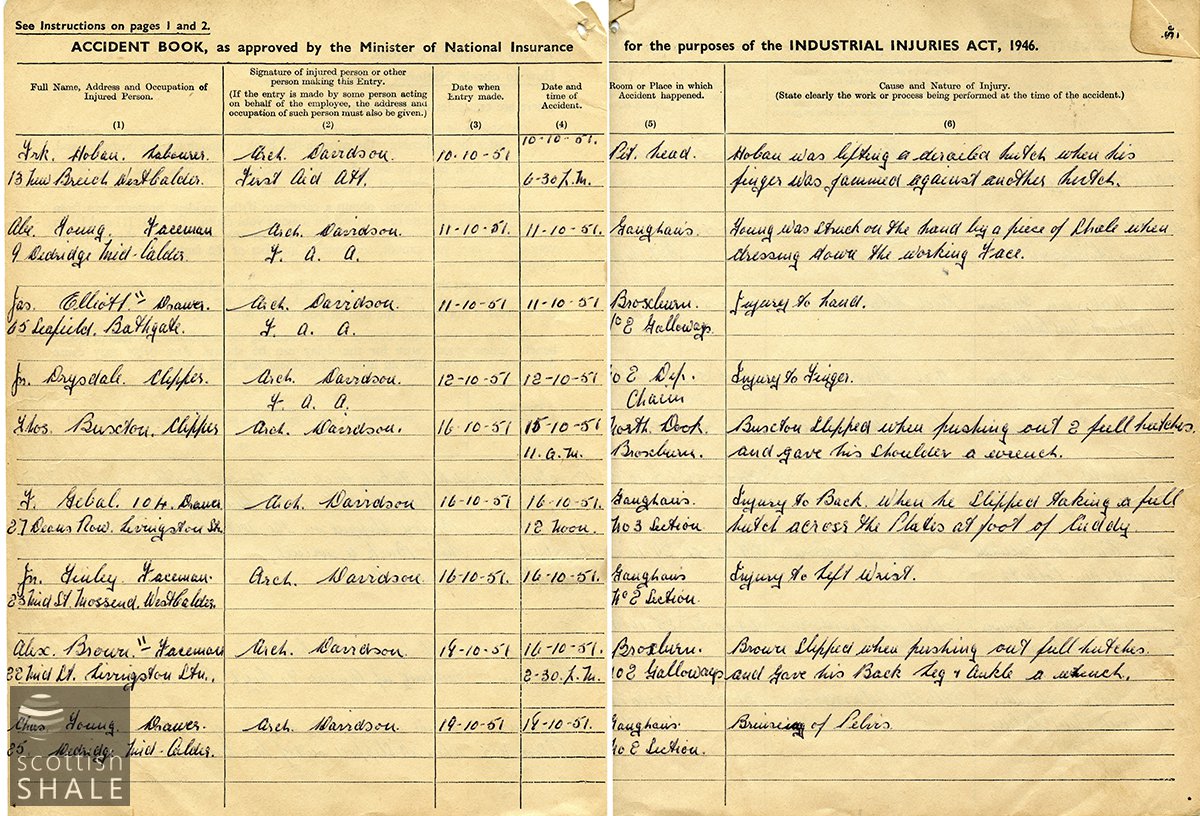 See Instructions on pages 1 and 2.
ACCIDENT BOOK, as approved by the Minister of National Insurance for the purposes of the INDUSTRIAL INJURIES ACT, 1946.
Full Name, Address and Occupation of Injured Person.
(1)
Signature of injured person or other person making this Entry.
(If the entry is made by some person acting on behalf of the employee, the address and occupation of such person must also be given.)
(2)
Date when Entry made.
(3)
Date and time of Accident.
(4)
Room or Place in which Accident happened.
(5)
Cause and Nature of Injury.
(State clearly the work or process being performed at the time of the accident.)
(6)
Frk. Hoban. Labourer. Arch. Davidson. 10-10-51 10-10-51. Pit head. Hoban was lifting a derailed hutch when his
13 New Breich West Calder. First Aid Att. 6-30 P.M. finger was jammed against another hutch.
Abe. Young. Faceman Arch. Davidson. 11-10-51. 11-10-51. Gaughans. Young was struck on the hand by a piece of Shale when
9 Dedridge Mid-Calder F. A. A. dressing down the working Face.
Jas. Elliott " Drawer. Arch. Davidson. 11-10-51 11-10-51. Broxburn. Injury to hand.
65 Seafield. Bathgate. F. A. A. E Galloways
Jn. Drysdale. Clipper. Arch. Davidson. 12-10-51 12-10-51. E Dip. Injury to Finger.
F. A. A. Chain
Thos. Buxton. Clipper Arch. Davidson. 16-10-51 15-10-51 North Dook. Buxton Slipped when pushing out 2 full hutches.
11. A.M. Broxburn. and gave his shoulder a wrench.
F. Gebal. 104. Drawer Arch. Davidson 16-10-51 16-10-51. Gaughans. Injury to Back when he Slipped taking a full
27 Deans Row. Livingston Stn. 12 Noon. No 3 Section hutch across the Plates at foot of Cuddy.
Jn. Finley. Faceman. Arch. Davidson. 16-10-51. 16-10-51. Gaughans Injury to Left Wrist.
23 Mid St. Mossend. West Calder. No E Section.
Alex. Brown. " Faceman Arch. Davidson. 19-10-51 16-10-51. Broxburn. Brown Slipped when pushing out full hutches
22 Mid St. Livingston Stn., 2-30. P.M. No E Galloways and gave his Back Leg & Ankle a wrench.
Chas. Young. Drawer. Arch. Davidson. 19-10-51. 19-10-51. Gaughans. Bruising of Pelvis.
25. Dedridge Mid-Calder. No E Section.
scottish
SHALE